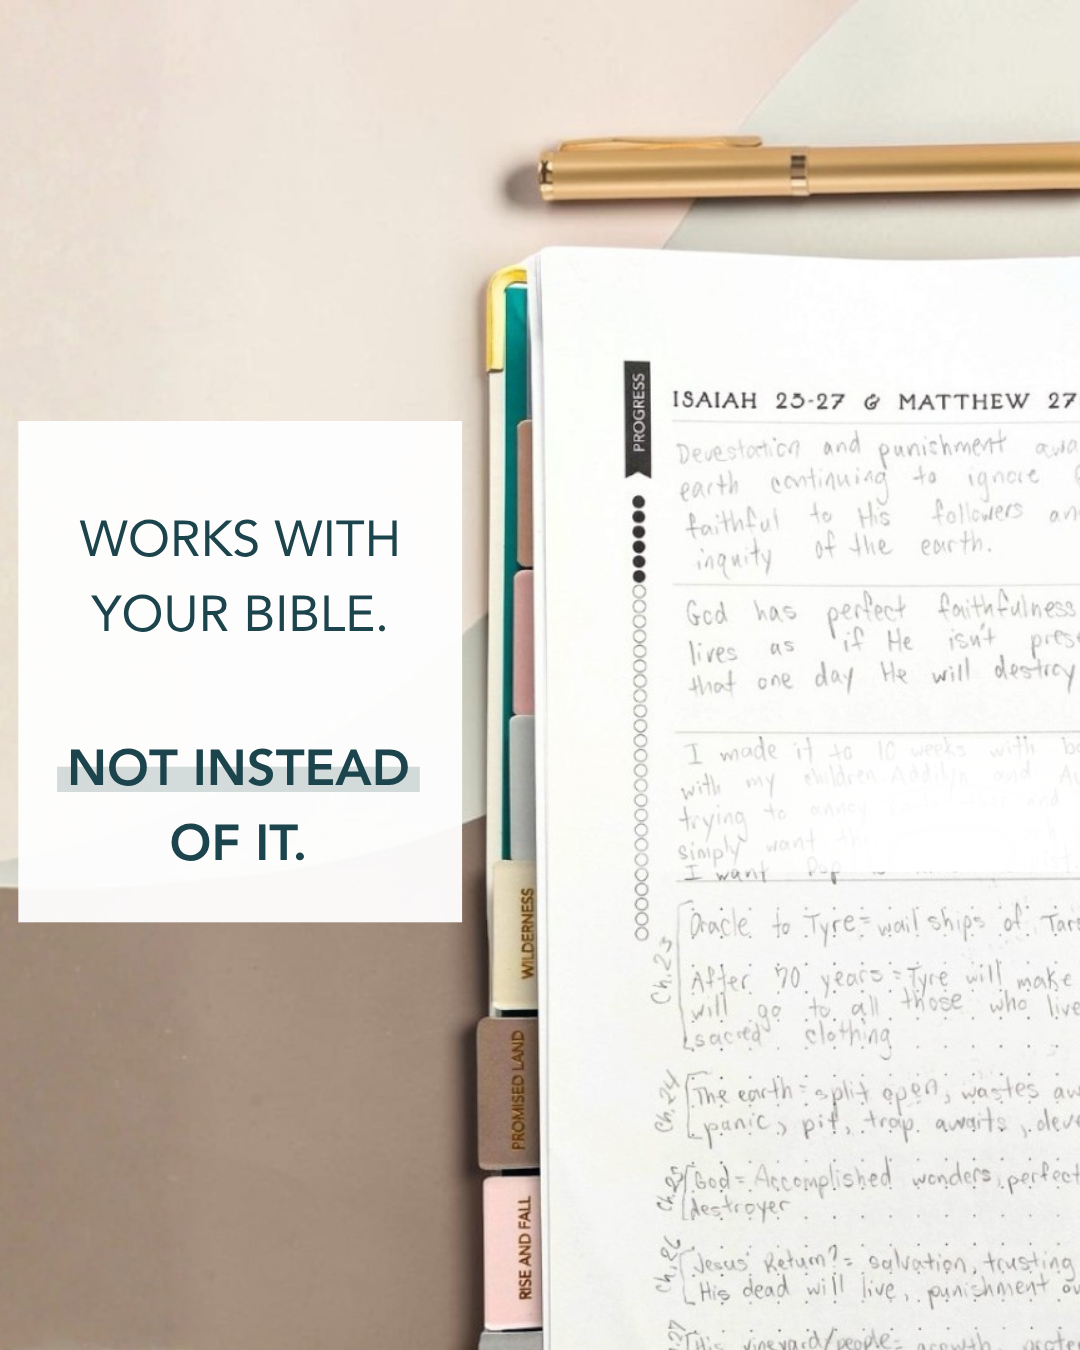 WORKS WITH
YOUR BIBLE.
NOT INSTEAD
OF IT.
WILDERNESS
PROMISED LAND
RISE AND FALL
PROGRESS
ISAIAH 23-27 & MATTHEW 27
Devestation and punishment awa
earth continuing to ignore G
faithful to His followers an
inquity of the earth.
God has perfect faithfulness
lives as if He isn't prese
that one day He will destroy
I made it to 10 weeks with
with my children and
trying to annoy
simply want
I want
Ch.23
Oracle to Tyre = wail ships of Tars
After 70 years = Tyre will make
will go to all those who live
sacred clothing
Ch.24
The earth = split open, wastes aw
panic, pit, trap awaits, deve
Ch.25
God = Accomplished wonders, perfect
destroyer
Ch.26
Jesus' Return? = salvation, trusting
His dead will live, punishment ov
27
His vineyard/people = growth, protec